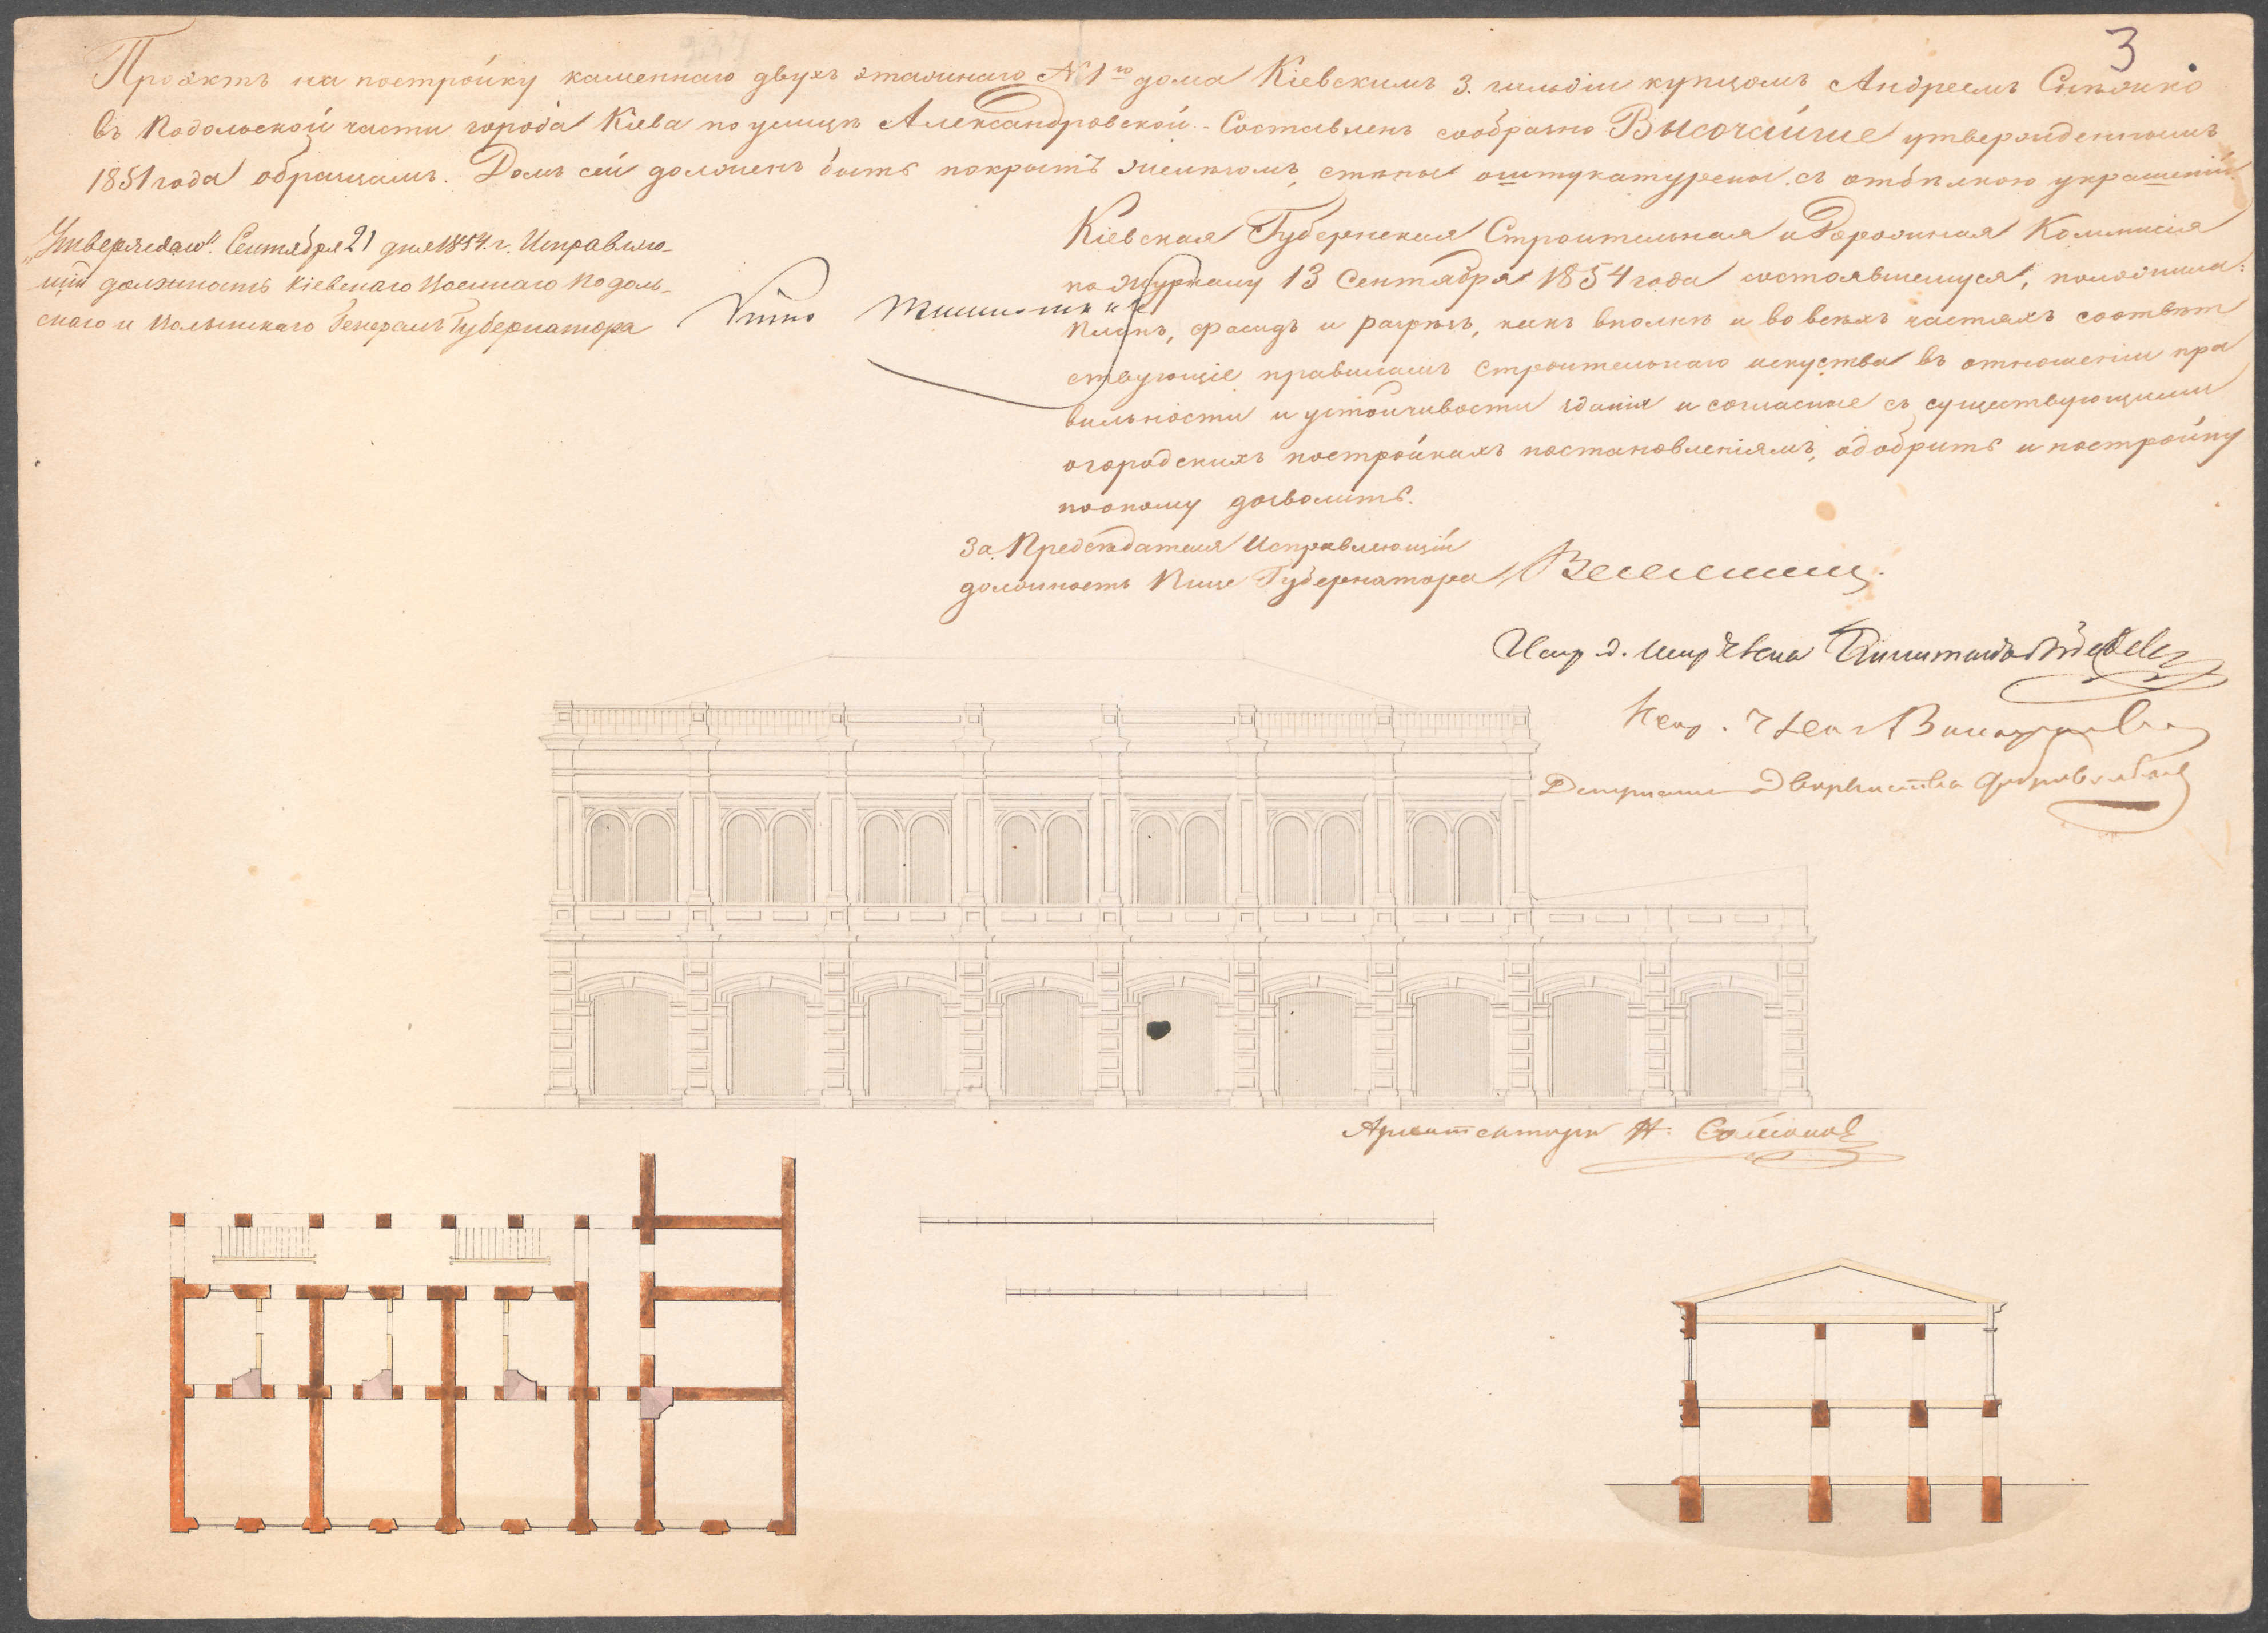 3
Проэктъ на постройку каменнаго двухъ этажнаго № 1го дома Кіевскимъ 3. гильдіи купцомъ Андреемъ
въ Подольской части города Кіева по улицѣ Александровской. - Составленъ сообразно Высочайше утвержденнымъ
1851 года образцамъ. Домъ сей долженъ быть покрытъ желѣзомъ, стѣны оштукатурены съ отбѣлкою украшеній.
„Утверждаю". Сентября 21 дня 1854. г. Исправляю-
щій должность Кіевскаго Военнаго Подоль-
скаго и Волынскаго Генералъ Губернатора
Кіевская Губернская Строительная и Дорожная Коммисія
по журналу 13 Сентября 1854 года состоявшемуся, положила:
планъ, фасадъ и разрѣзъ, какъ вполнѣ и во всѣхъ частяхъ соотвѣт
ствующіе правиламъ Строительнаго искуства въ отношеніи пра
вильности и устойчивости зданія и согласные съ существующими
о городскихъ постройкахъ постановленіямъ, одобрить и постройку
по оному дозволить.
За Предсѣдателя Исправляющій
должность Вице Губернатора
Депутатъ Дворянства
Архитекторъ